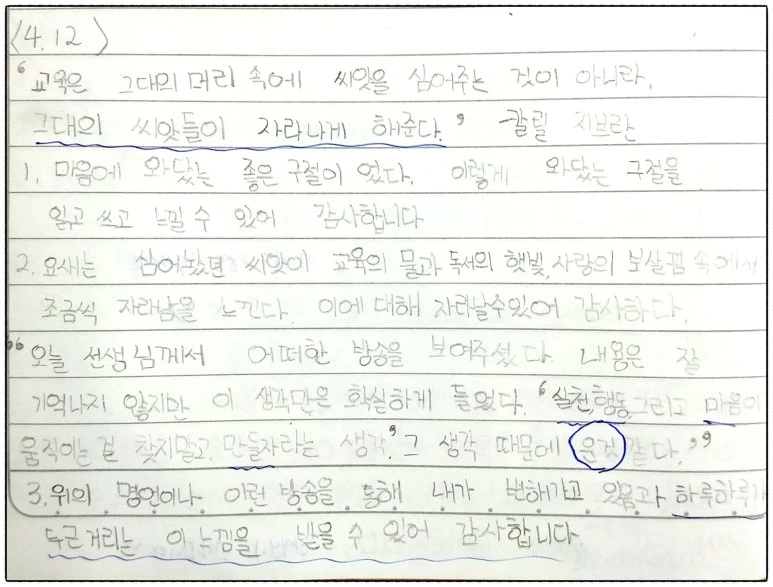 <4.12>
“교육은 그대의 머리 속에 씨앗을 심어주는 것이 아니라,
그대의 씨앗들이 자라나게 해준다.” -칼릴 지브란
1. 마음에 와닿는 좋은 구절이 였다. 이렇게 와닿는 구절을
읽고 쓰고 느낄 수 있어 감사합니다
2. 요새는 심어놨던 씨앗이 교육의 물과 독서의 햇빛, 사랑의 보살핌 속에서
조금씩 자라남을 느낀다. 이에 대해 자라날수있어 감사하다.
“오늘 선생님께서 어떠한 방송을 보여주셨다. 내용은 잘
기억나지 않지만 이 생각만은 확실하게 들었다. ‘실천, 행동 그리고 마음이
움직이는 걸 찾지말고, 만들자라는 생각.’ 그 생각 때문에 운것 같다.”
3. 위의 명언이나 이런 방송을 통해 내가 변해가고 있음과 하루하루가
두근거리는 이 느낌을 받을 수 있어 감사합니다.